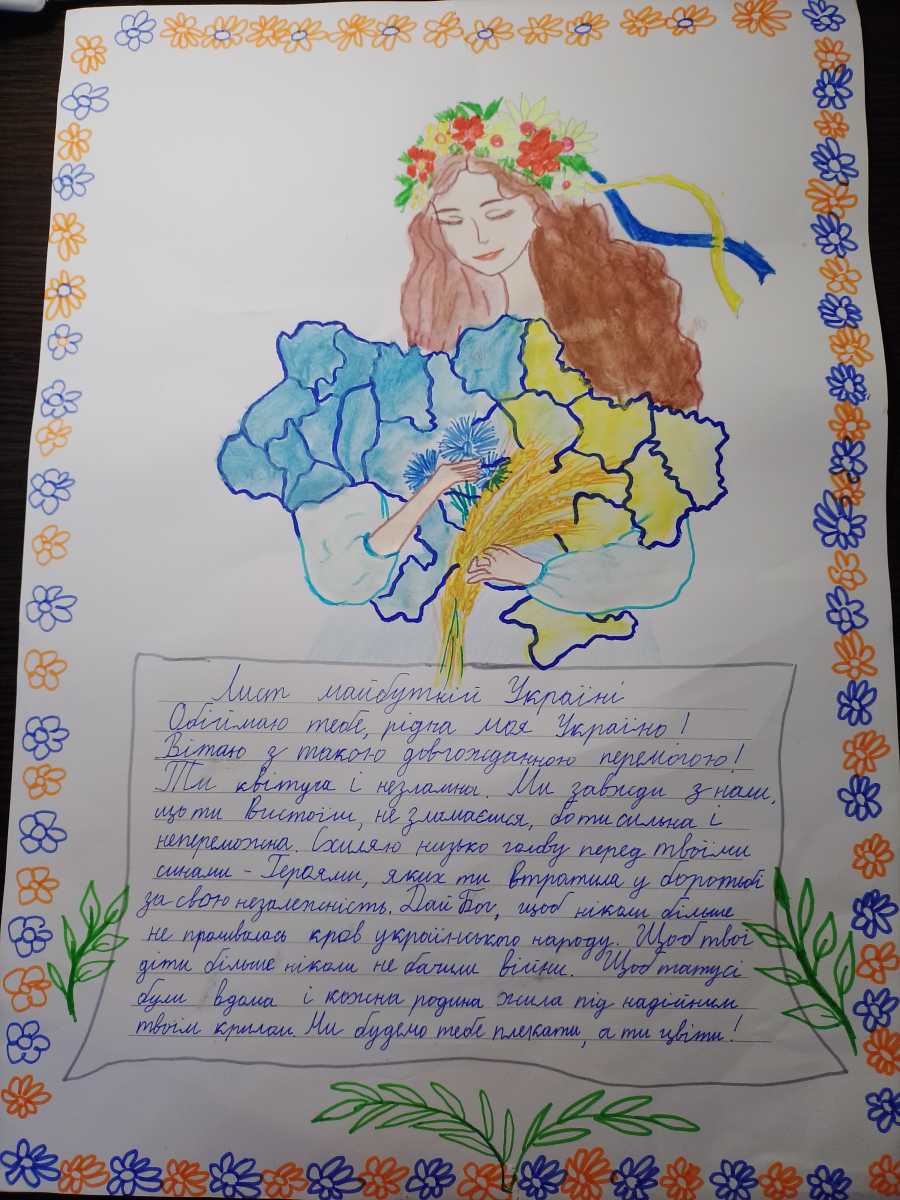 Лист майбутній Україні
Обіймаю тебе, рідна моя Україно!
Вітаю з такою довгожданною перемогою!
Ти квітуча і незламна. Ми завжди знали,
що ти вистоїш, не зламаєшся, бо ти сильна і
непереможна. Схиляю низько голову перед твоїми
синами - Героями, яких ти втратила у боротьбі
за свою незалежність. Дай Бог, щоб ніколи більше
не проливалась кров українського народу. Щоб твої
діти більше ніколи не бачили війни. Щоб татусі
були вдома і кожна родина жила під надійним
твоїм крилом. Ми будемо тебе плекати, а ти цвіти!